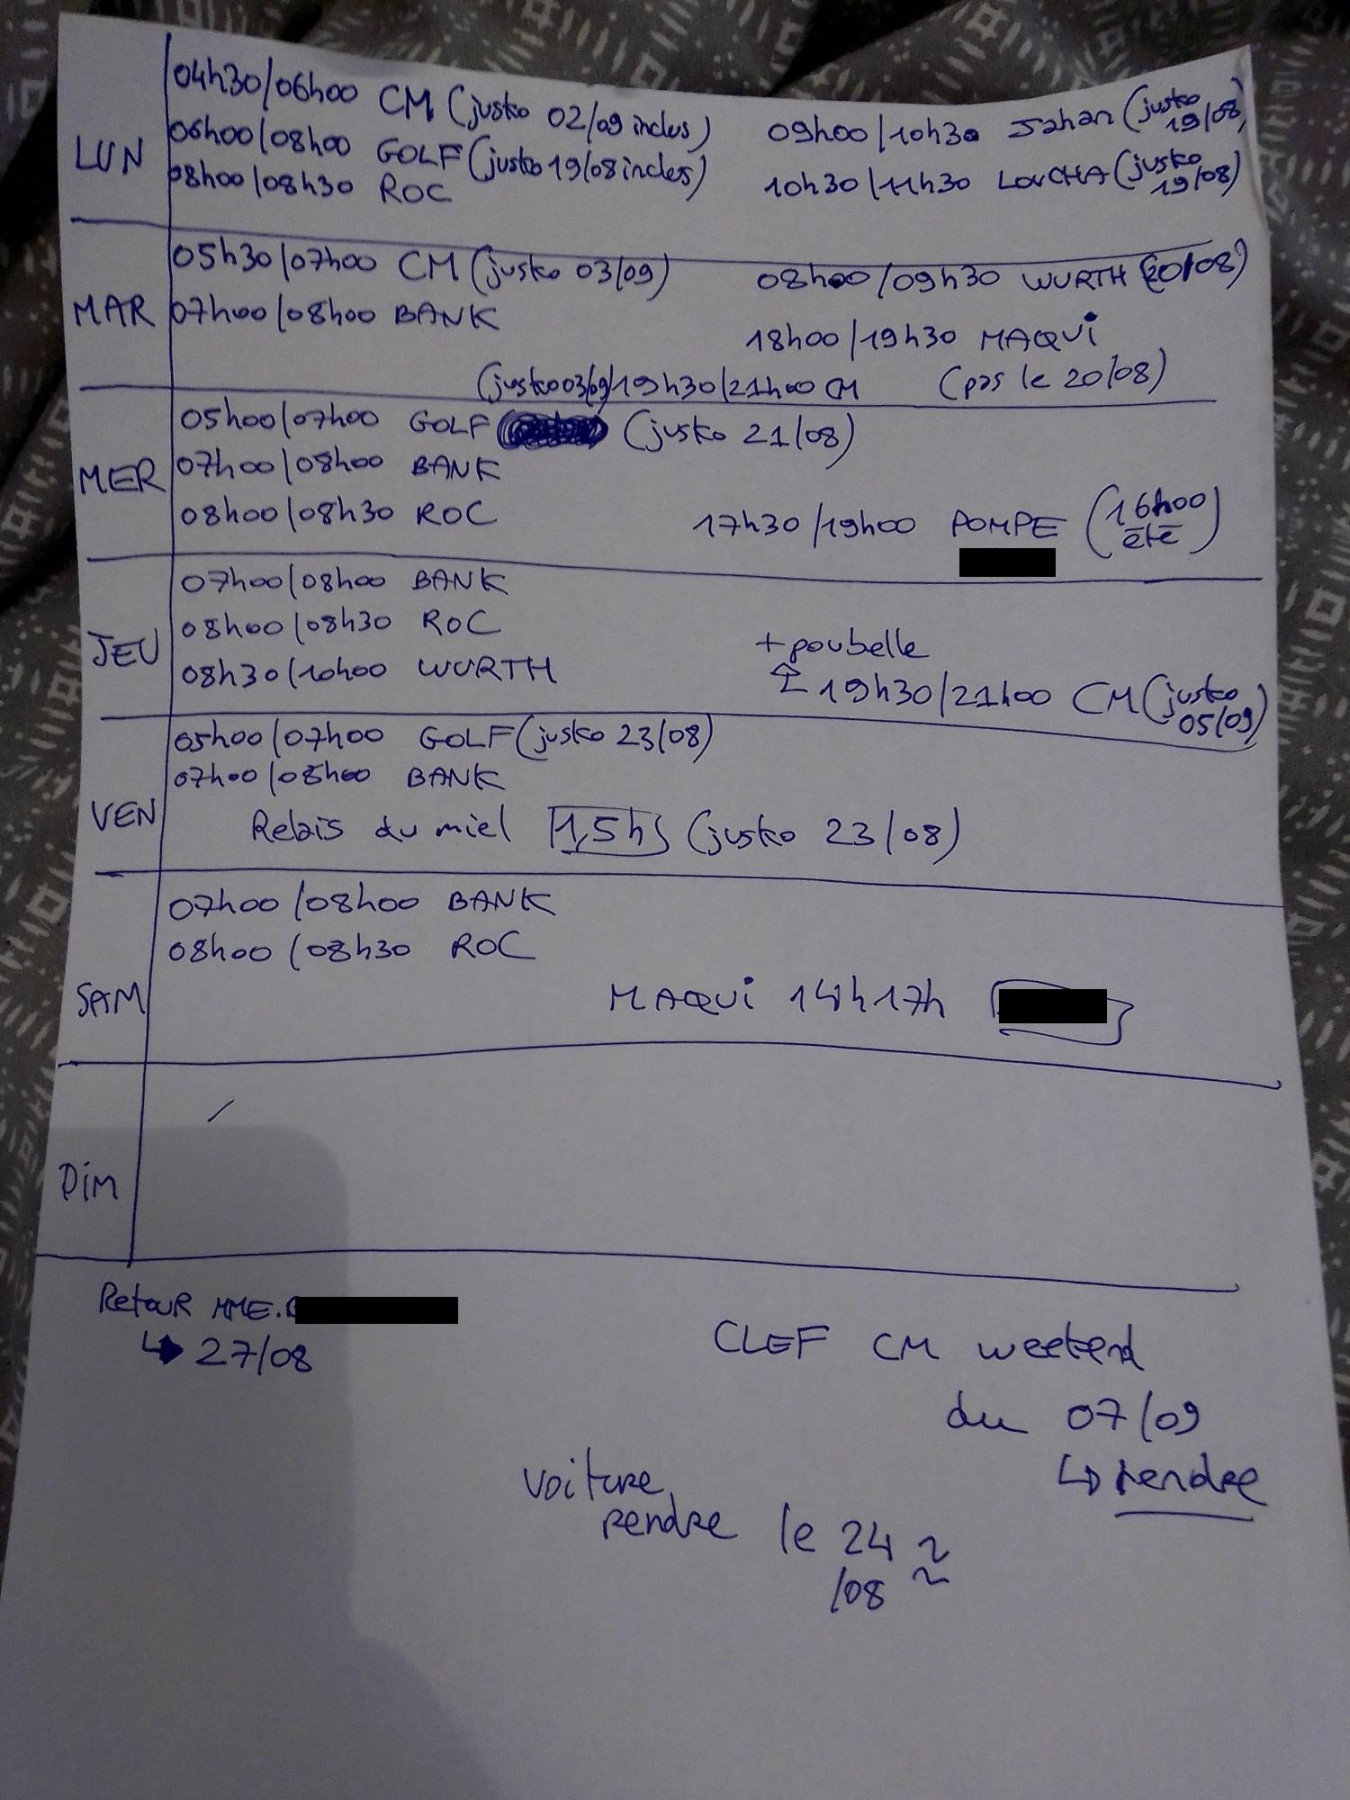 LUN
04h30/06h00 CM (jusko 02/09 inclus)
06h00/08h00 GOLF (jusko 19/08 inclus)
08h00/08h30 ROC
09h00/10h30 Johan (jusko 19/08)
10h30/11h30 LOUCHA (jusko 19/08)
MAR
05h30/07h00 CM (jusko 03/09)
07h00/08h00 BANK
08h00/09h30 WURTH (20/08)
18h00/19h30 MAQUi
(pas le 20/08)
(jusko 03/09) 19h30/21h00 CM
MER
05h00/07h00 GOLF (jusko 21/08)
07h00/08h00 BANK
08h00/08h30 ROC
17h30/19h00 POMPE (16h00 été)
JEU
07h00/08h00 BANK
08h00/08h30 ROC
08h30/10h00 WURTH
+ poubelle
19h30/21h00 CM (jusko 05/09)
VEN
05h00/07h00 GOLF (jusko 23/08)
07h00/08h00 BANK
Relais du miel 1,5h (jusko 23/08)
SAM
07h00/08h00 BANK
08h00/08h30 ROC
MAQUi 14h17h
DiM
Retour MME.
↳ 27/08
CLEF CM weekend
du 07/09
↳ rendre
voiture
rendre le 24
/08